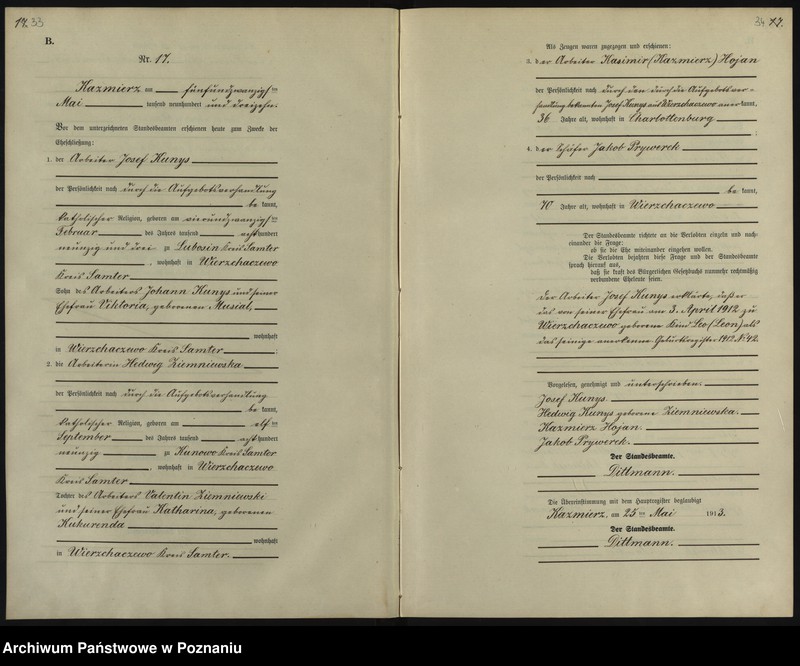 17. 33
B.
Nr. 17.
Kazmierz am fünfundzwanzigsten
Mai tausend neunhundert und dreizehn.
Vor dem unterzeichneten Standesbeamten erschienen heute zum Zwecke der
Eheschließung:
1. der Arbeiter Josef Kunys
der Persönlichkeit nach durch die Aufgebotsverhandlung
be kannt,
katholischer Religion, geboren am vierundzwanzigsten
Februar des Jahres tausend achthundert
neunzig und drei zu Lubosin Kreis Samter
, wohnhaft in Wierzchaczewo
Kreis Samter
Sohn des Arbeiters Johann Kunys und seiner
Ehefrau Viktoria, geborenen Musial,
wohnhaft
in Wierzchaczewo Kreis Samter ;
2. die Arbeiterin Hedwig Ziemniewska
der Persönlichkeit nach durch die Aufgebotsverhandlung
be kannt,
katholischer Religion, geboren am elften
September des Jahres tausend achthundert
neunzig zu Kunowo Kreis Samter
, wohnhaft in Wierzchaczewo
Kreis Samter
Tochter des Arbeiters Valentin Ziemniewski
und seiner Ehefrau Katharina, geborenen
Kukurenda
wohnhaft
in Wierzchaczewo Kreis Samter.
34 17.
Als Zeugen waren zugezogen und erschienen:
3. der Arbeiter Kasimir (Kazmierz) Hojan
der Persönlichkeit nach durch den durch die Aufgebotsver-
handlung bekannten Josef Kunys aus Wierzchaczewo anerkannt,
36 Jahre alt, wohnhaft in Charlottenburg
;
4. der Schäfer Jakob Prywerek
der Persönlichkeit nach
be kannt,
70 Jahre alt, wohnhaft in Wierzchaczewo
Der Standesbeamte richtete an die Verlobten einzeln und nach-
einander die Frage:
ob sie die Ehe miteinander eingehen wollen.
Die Verlobten bejahten diese Frage und der Standesbeamte
sprach hierauf aus,
daß sie kraft des Bürgerlichen Gesetzbuchs nunmehr rechtmäßig
verbundene Eheleute seien.
Der Arbeiter Josef Kunys erklärte, daß er
das von seiner Ehefrau am 3. April 1912 zu
Wierzchaczewo geborene Kind Leo (Leon) als
das seinige anerkenne. Geburtsregister 1912 Nr. 42.
Vorgelesen, genehmigt und unterschrieben.
Josef Kunys.
Hedwig Kunys geborene Ziemniewska.
Kazmierz Hojan.
Jakob Prywerek.
Der Standesbeamte.
Dittmann.
Die Übereinstimmung mit dem Hauptregister beglaubigt
Kazmierz, am 25ten Mai 1913.
Der Standesbeamte.
Dittmann.
Archiwum Państwowe w Poznaniu